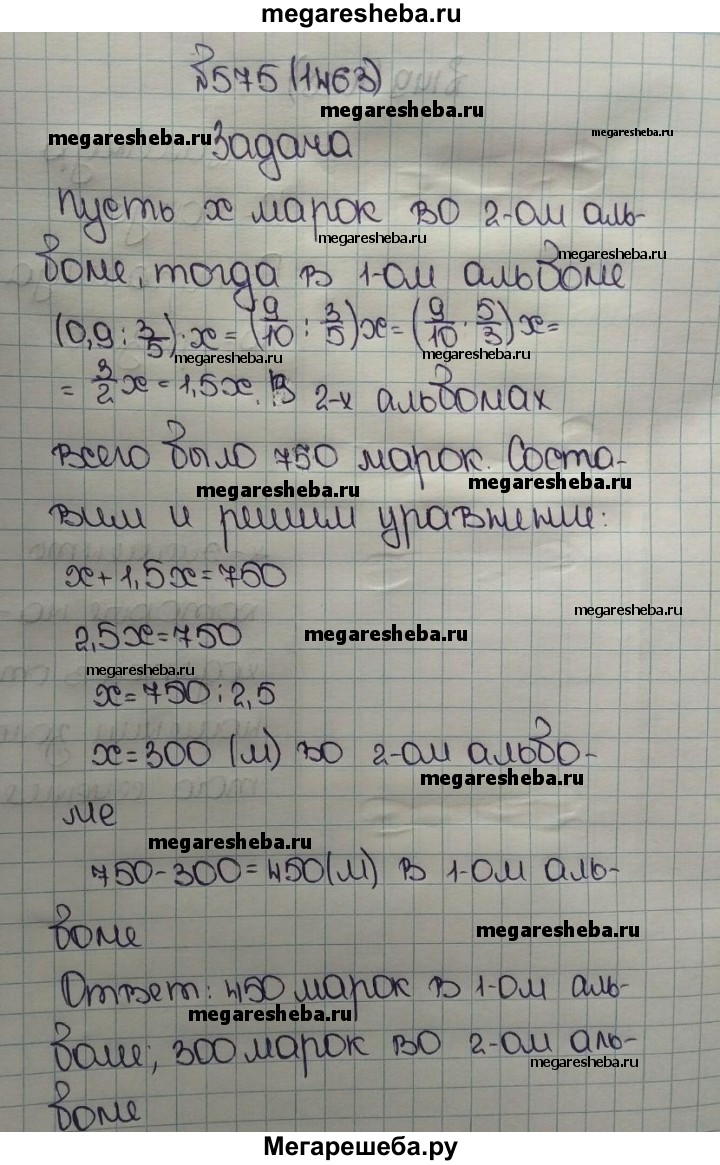 megaresheba.ru
№575(1463)
megaresheba.ru
megaresheba.ru Задача megaresheba.ru
Пусть x марок во 2-ом аль-
megaresheba.ru
боме, тогда в 1-ом альбоме
megaresheba.ru
(0,9 : 3/5)·x = (9/10 : 3/5)x = (9/10 · 5/3)x =
megaresheba.ru megaresheba.ru
= 3/2x = 1,5x. В 2-х альбомах
всего было 750 марок. Соста-
megaresheba.ru megaresheba.ru
вим и решим уравнение:
x+1,5x=750
megaresheba.ru
2,5x=750 megaresheba.ru
megaresheba.ru
x=750:2,5
x=300 (м) во 2-ом альбо-
megaresheba.ru
ме
megaresheba.ru
750-300=450(м) в 1-ом аль-
боме megaresheba.ru
Ответ: 450 марок в 1-ом аль-
megaresheba.ru
боме; 300 марок во 2-ом аль-
megaresheba.ru
боме
Мегарешеба.ру